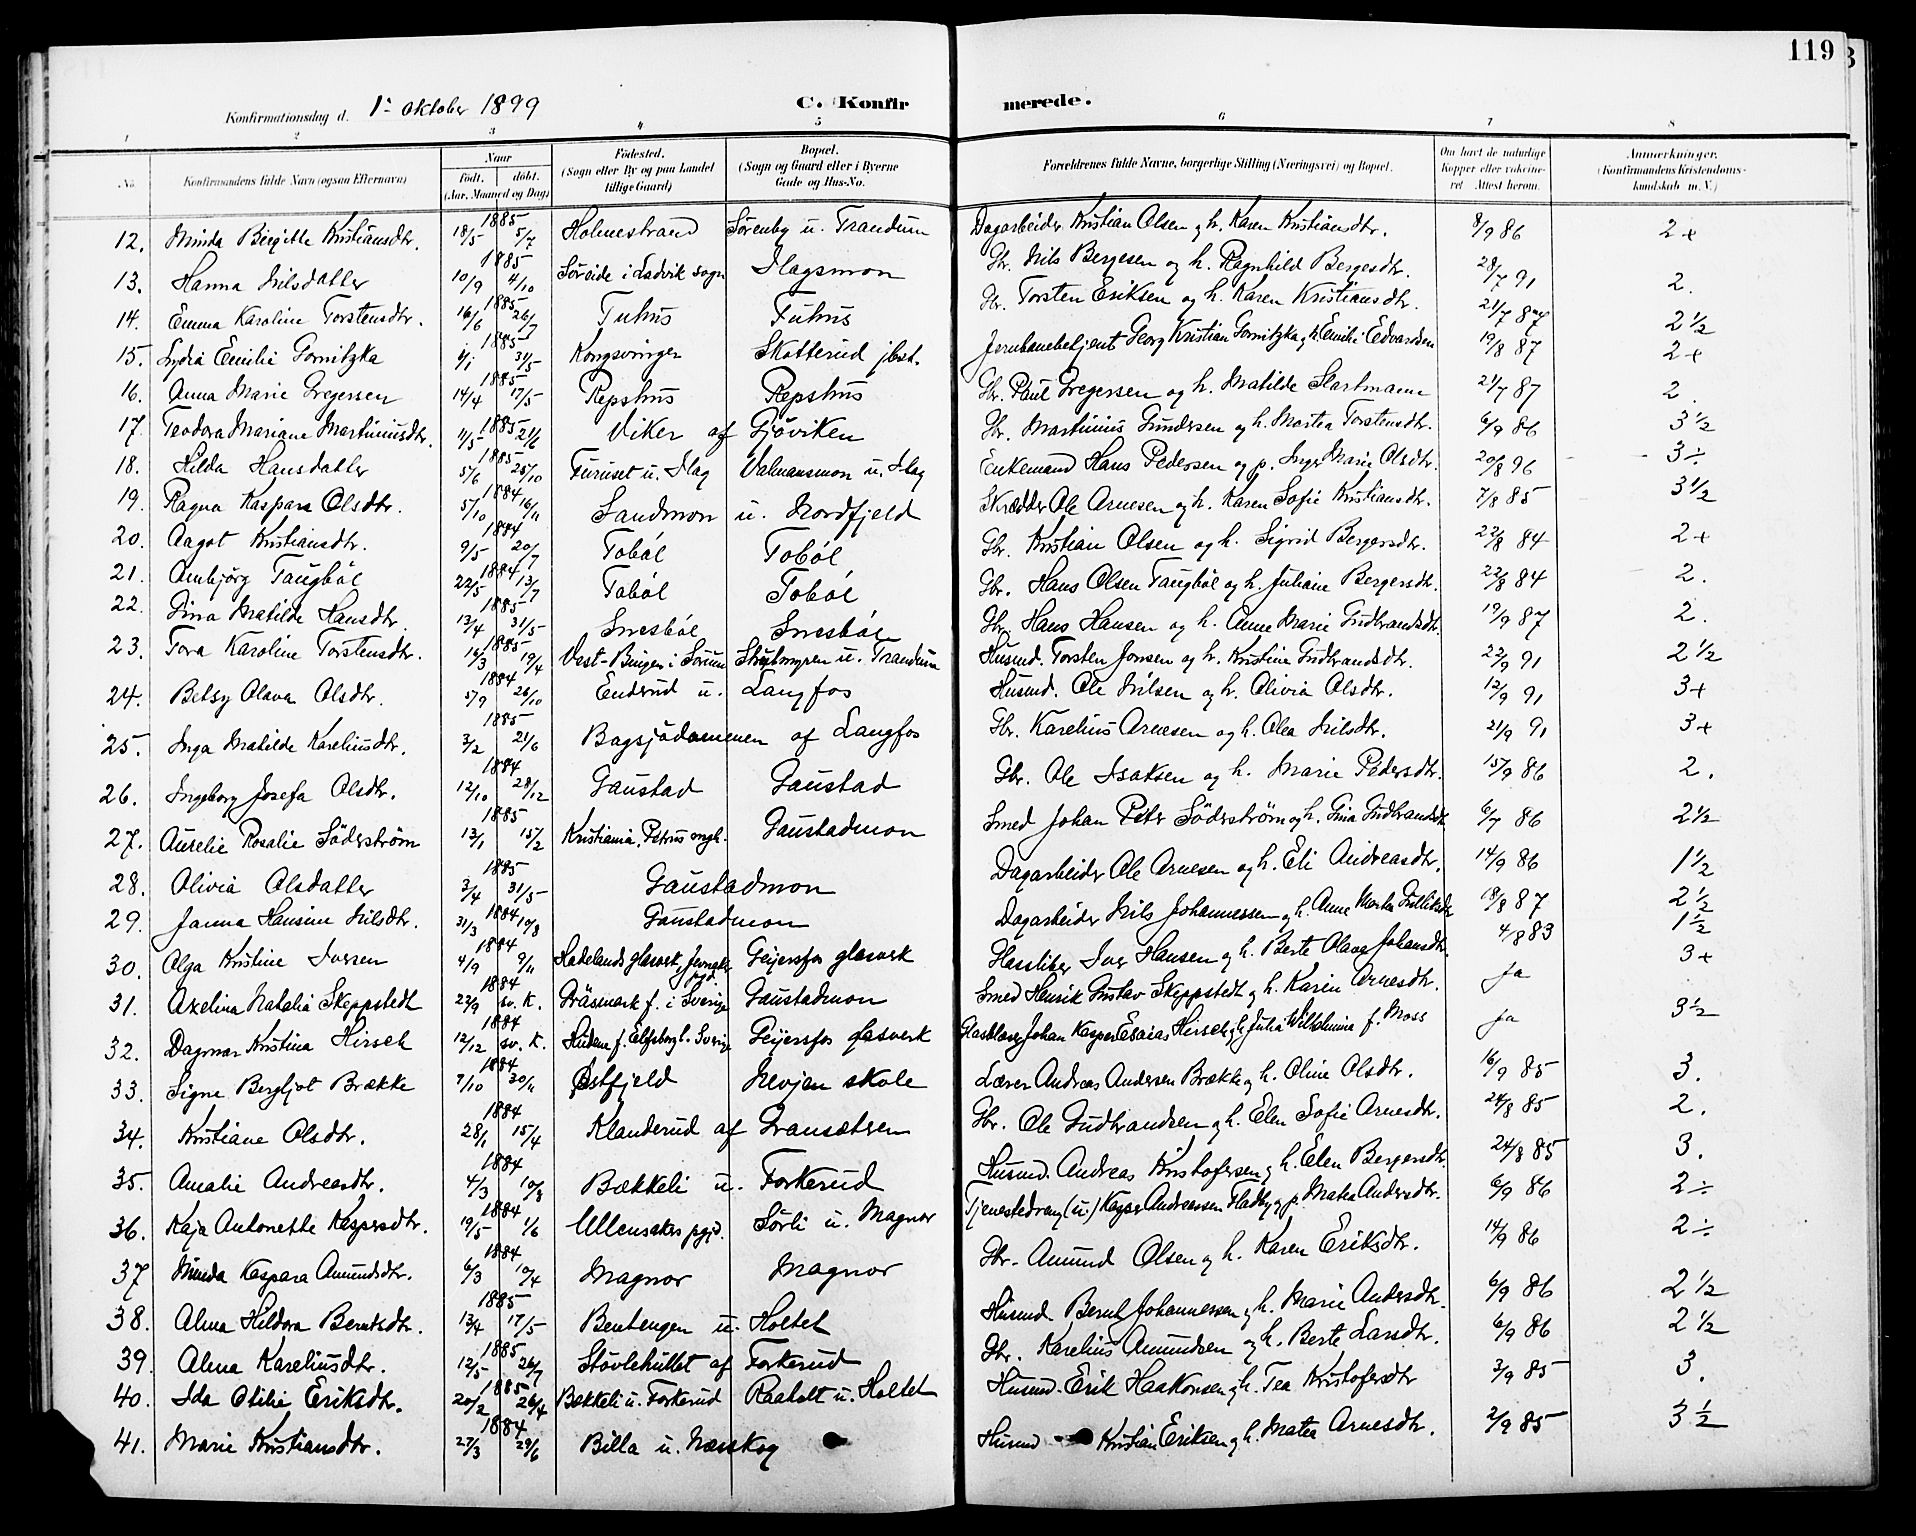 119
Konfirmationsdag d. 1ᵗᵉ Oktober 1899 C. Konfirmerede.
1 2 3 4 5 6 7 8
No. Konfirmandens fulde Navn (ogsaa Efternavn) Naar født. døbt. (Aar, Maaned og Dag) Fødested. (Sogn eller By og paa Landet tillige Gaard) Bopæl. (Sogn og Gaard eller i Byerne Gade og Hus-No. Forældrenes fulde Navne, borgerlige Stilling (Næringsvei) og Bopæl. Om havt de naturlige Kopper eller vaccineret Attest herom. Anmærkninger. (Konfirmandens Kristendomskundskab m. V.)
12. Minda Birgitte Kristiansdtr. 1885 18/5 5/7 Holmestrand Sörenby u. Trandum Dagarbeider Kristian Olsen og h. Karen Kristiansdtr. 8/9 86 2+
13. Hanna Nilsdatter 1885 10/9 4/10 Söreide i Ladvik sogn Flagsmon Gbr. Nils Bergesen og h. Ragnhild Bergesdtr. 28/7 91 2.
14. Emma Karoline Torstensdtr. 1885 16/6 26/7 Tuhus Tuhus Gbr. Torsten Eriksen og h. Karen Kristiansdtr. 21/7 87 2 1/2
15. Lydia Emilie Gornitzka 1885 1/1 31/5 Kongsvinger Skotterud jbst. Jernbanebetjent Georg Kristian Gornitzka og h. Emilie Edvardsen 19/8 87 2+
16. Anna Marie Gregersen 1885 14/4 17/5 Repshus Repshus Gbr. Paul Gregersen og h. Matilde Slartmann 21/7 87 2.
17. Teodora Mariane Martiniusdtr. 1885 11/5 21/6 Viker af Gjöviken Gbr. Martinius Gundersen og h. Martea Torstensdtr. 6/9 86 3 1/2
18. Hilda Hansdatter 1885 5/6 25/10 Furuset u. Flag Valmansmon u. Flag Enkemand Hans Pedersen og p. Inger Marie Olsdtr. 20/8 96 3÷
19. Ragna Kaspara Olsdtr. 1884 5/10 16/11 Sandmon u. Nordfjeld Skrædder Ole Arnesen og h. Karen Sofie Kristiansdtr. 7/8 85 3 1/2
20. Aagot Kristiansdtr. 1884 9/5 20/7 Toböl Toböl Gbr. Kristian Olsen og h. Sigrid Bergersdtr. 22/8 84 2+
21. Ambjörg Taugböl 1884 22/5 13/7 Toböl Toböl Gbr. Hans Olsen Taugböl og h. Juliane Bergersdtr. 22/8 84 2.
22. Gina Matilde Hansdtr. 1885 13/4 31/5 Snesböl Snesböl Gbr. Hans Hansen og h. Anne Marie Gudbrandsdtr. 19/9 87 2.
23. Tora Karoline Torstensdtr. 1885 16/3 19/4 Vest-Bingen i Sörum Skulmyren u. Trandum Husmd. Torsten Jonsen og h. Kristine Gudbrandsdtr. 22/9 91 2 1/2
24. Betsy Olava Olsdtr. 1884 5/9 26/10 Enderud u. Langfos Husmd. Ole Nilsen og h. Olivia Olsdtr. 12/9 91 3+
25. Inga Matilde Kareliusdtr. 1885 3/2 21/6 Bagsjödammen af Langfos Gbr. Karelius Arnesen og h. Olea Nilsdtr. 21/9 91 3+
26. Ingeborg Josefa Olsdtr. 1884 12/10 28/12 Gaustad Gaustad Gbr. Ole Isaksen og h. Marie Pedersdtr. 15/9 86 2.
27. Aurelie Rosalie Söderström 1885 13/1 15/2 Kristiania, Petrus mgh. Gaustadmon Smed Johan Peter Söderström og h. Gina Gudbrandsdtr. 6/7 86 2 1/2
28. Olivia Olsdatter 1885 3/4 31/5 Gaustadmon Dagarbeider Ole Arnesen og h. Eli Andreasdtr. 14/9 86 1 1/2
29. Janna Hansine Nilsdtr. 1884 31/3 10/8 Gaustadmon Dagarbeider Nils Johannessen og h. Anne Martea 18/8 87 2 1/2
30. Olga Kristine Iversen 1884 4/9 9/11 Hadelands glasverk, Jevnaker pgd. Geijersfos glasverk Iver Hansen og h. Berte Olava Johansdtr. 4/8 83 1 1/2
31. Axelina Natalia Skeppstedt 1884 22/9 sv. K. Gräsmark f. i Sverige Gaustadmon Smed Henrik Gustav Skeppstedt og h. Karin Arnesdtr. ja 3+
32. Dagmar Kristina Hirsch 1884 12/12 sv. K. Hudene f. Elfsborg l. Sverige Geijersfos glasverk Glasblæser Johan Kasper Esaias Hirsch og h. Julia Wilhelmine f. Moss ja 3 1/2
33. Signe Bergljot Brække 1884 7/10 30/11 Östfjeld Nevjen skole Lærer Andreas Andersen Brække og h. Oline Olsdtr. 16/9 85 3.
34. Kristiane Olsdtr. 1884 28/1 15/4 Klanderud af Gransætren Gbr. Ole Gudbrandsen og h. Elen Sofie Arnesdtr. 24/8 85 2.
35. Amalie Andreasdtr. 1884 4/3 10/8 Bækkeli u. Forkerud Husmd. Andreas Kristofersen og h. Elen Bergersdtr. 24/8 85 3.
36. Kaja Antonette Kaspersdtr. 1884 19/5 1/6 Ullensaker pgd. Sörli u. Magnor Tjenestedreng (u.) Kasper Andreassen Fladby og p. Matea Andersdtr. 6/9 86 2÷
37 Minda Kaspara Amundsdtr. 1884 6/3 10/4 Magnor Magnor Gbr. Amund Olsen og h. Karen Eriksdtr. 14/9 86 2÷
38. Alma Hildora Berntsdtr. 1885 13/4 17/5 Bentengen u. Holtet Husmd. Bernt Johannessen og h. Marie Andersdtr. 6/9 86 2 1/2
39. Alma Kareliusdtr. 1885 12/5 26/7 Stövlehullet af Forkerud Gbr. Karelius Amundsen og h. Berte Larsdtr. 6/9 86 2 1/2
40. Ida Otilie Eriksdtr. 1885 20/2 26/4 Bækkeli u. Forkerud Raaholt u. Holtet Husmd. Erik Haakonsen og h. Tea Kristofersdtr 3/9 85 3.
41. Marie Kristiansdtr. 1884 27/3 29/6 Billa u. Næsskog Husmd Kristian Eriksen og h. Matea Arnesdtr. 2/9 85 3 1/2